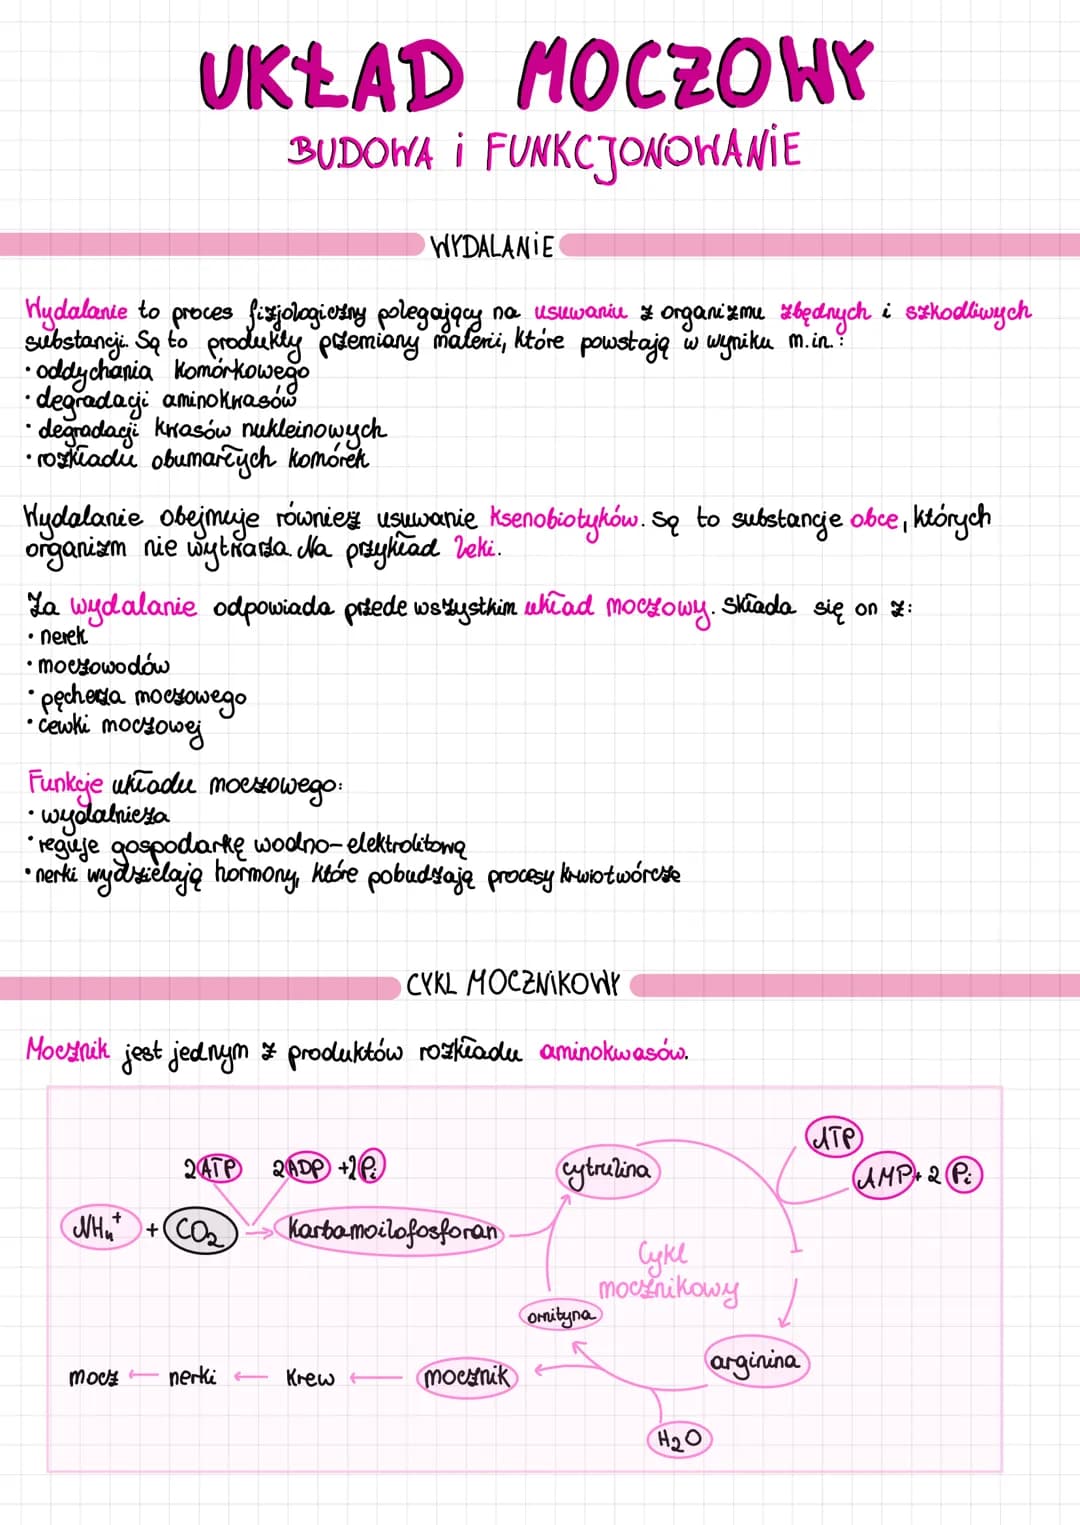 UKŁAD MOCZOWY
BUDOWA i FUNKCJONOWANiE
WYDALANiE
Wydalanie to proces fizjologiczny polegający na usuwaniu z organizmu zbędnych i szkodliwych
substancji. Są to produkty przemiany materii, które powstają w wyniku m.in.:
• oddychania komórkowego
• degradacji aminokwasów
• degradacji kwasów nukleinowych
• rozkładu obumarłych komórek
Wydalanie obejmuje również usuwanie ksenobiotyków. Są to substancje obce, których
organizm nie wytwarza. Na przykład leki.
Za wydalanie odpowiada przede wszystkim układ moczowy. Składa się on z:
• nerek
• moczowodów
• pęcherza moczowego
• cewki moczowej
Funkcje układu moczowego:
• wydalnicza
• reguje gospodarkę wodno-elektrolitową
• nerki wydzielają hormony, które pobudzają procesy krwiotwórcze
CYKL MOCZNiKOWY
Mocznik jest jednym z produktów rozkładu aminokwasów.
ATP
2ATP 2ADP +2Pi cytrulina AMP + 2 Pi
NH4+ + CO2 → karbamoilofosforan
Cykl
mocznikowy
ornityna
arginina
mocz ← nerki ← krew ← mocznik
H2O